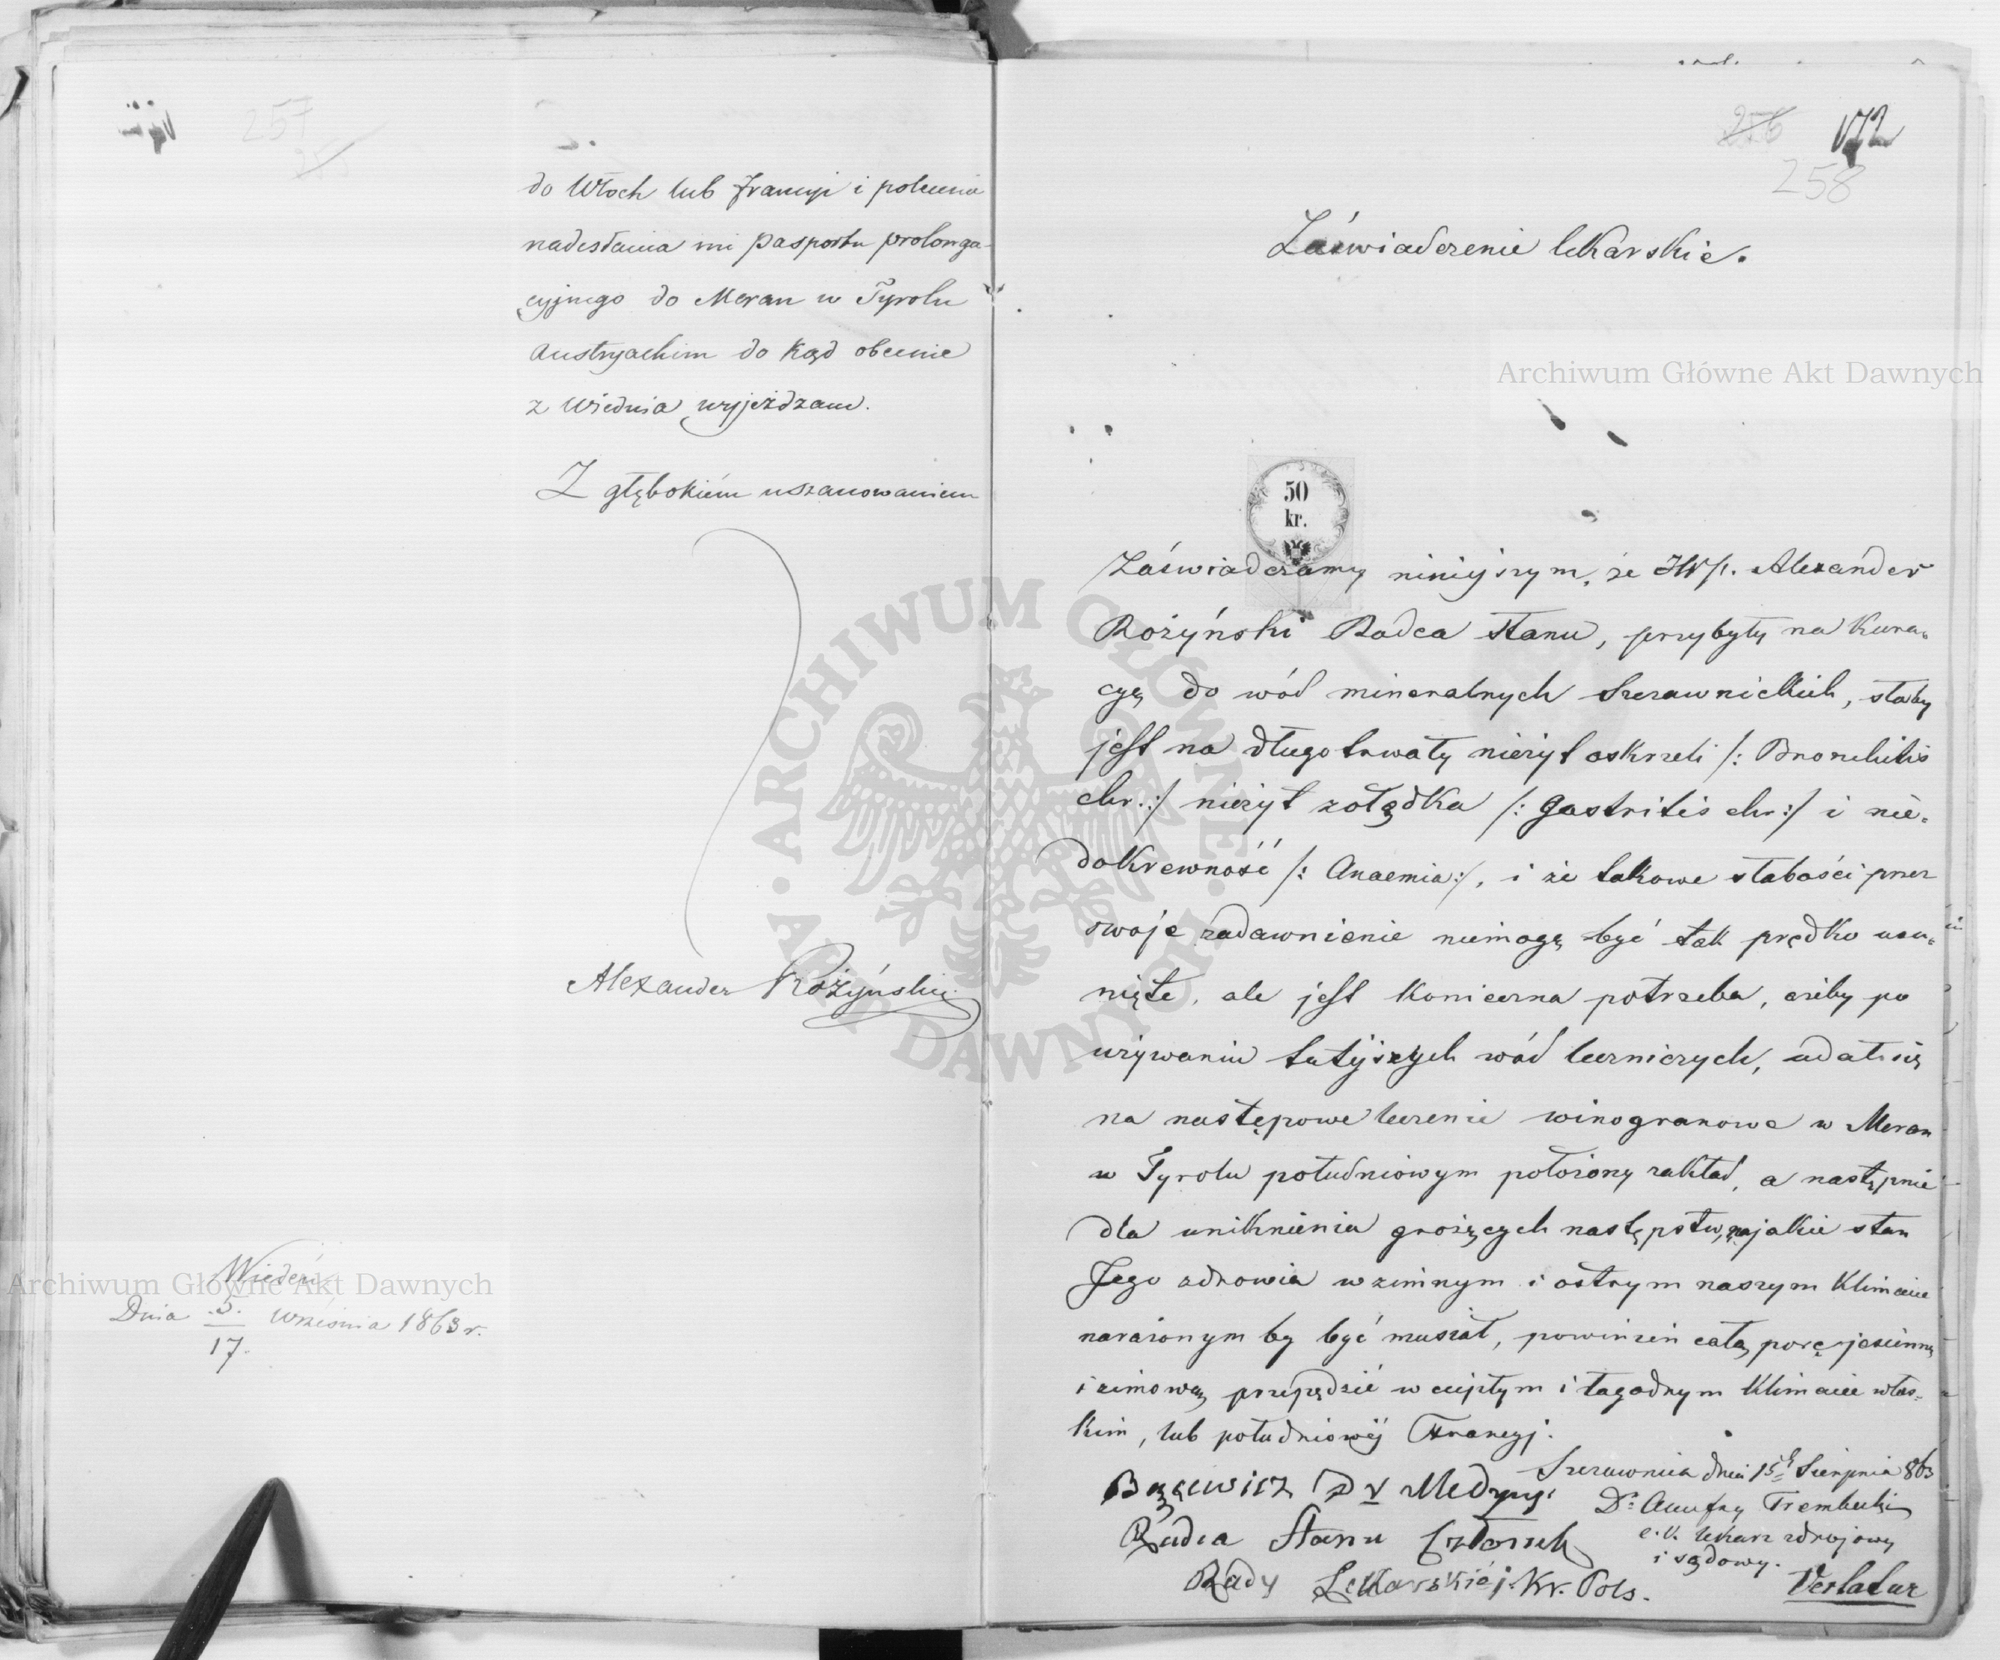 257
do Włoch lub Francyi i polecenia
nadesłania mi pasportu prolonga-
cyjnego do Meran w Tyrolu
austryackim do kąd obecnie
z Wiednia wyjeżdzam.
Z głębokiém uszanowaniem
Alexander Rożyński
Wiedeń
Dnia 5./17. Września 1863 r.
256 172
258
Zaświadczenie lekarskie.
50
kr.
Zaświadczamy niniejszym, że JWP. Alexander
Rożyński Radca Stanu, przybyły na kura„
cyę do wód mineralnych Szczawnickich, słaby
jest na długotrwały nieżyt oskrzeli /: Bronchitis
chr.:/ nieżyt zołądka /: Gastritis chr:/ i nie„
dokrewność /: Anaemia:/, i że takowe słabości przez
swoje zadawnienie niemogą być tak prędko usu„
nięte, ale jest konieczna potrzeba, ażeby po
używaniu tutejszych wód leczniczych, udał się
na następowe leczenie winogronowe w Meran
w Tyrolu południowym położony zakład, a następnie
dla uniknienia grożących następstw, na jakie stan
Jego zdrowia w zimnym i ostrym naszym klimacie
narażonym by być musiał, powinien całą porę jesienną
i zimową przepędzić w ciepłym i łagodnym klimacie włos„
kim, lub południowéj Francyj.
Szczawnica dnia 15 Sierpnia 863
Dr Onufry Trembecki
c. k. lekarz zdrojowy
i sądowy.
Bącewicz Dr Medycy.
Radca Stanu Członek
Rady Lekarskiéj Kr. Pols.
Vertatur
Archiwum Główne Akt Dawnych
Archiwum Główne Akt Dawnych
ARCHIWUM GŁÓWNE AKT DAWNYCH